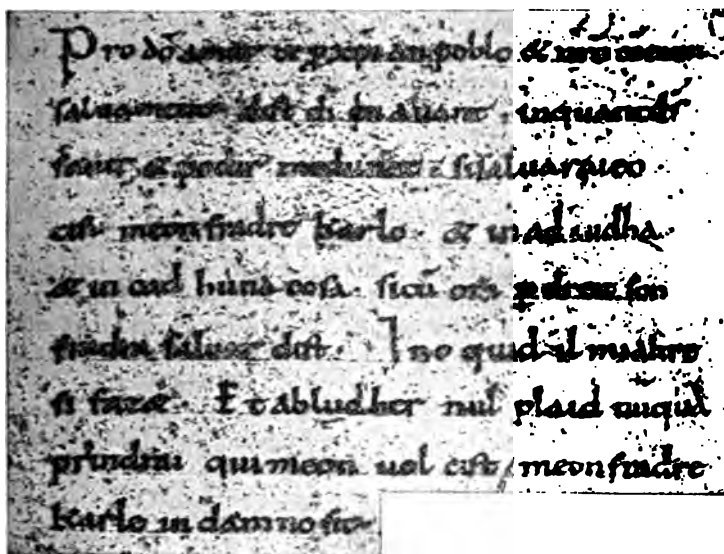 Pro dō amur & p xpian poblo & nro comun
saluament dist di en auant inquant ds
sauir & podir medunat sisaluaraieo
cist meon fradre karlo · & in adiudha
& in cad huna cosa sicū om p dreit son
fradra saluar dist · Ino quid il mialtre
si fazet · Et abludher nul plaid nuquā
prindrai qui meon uol cist meon fradre
karlo in damno sit